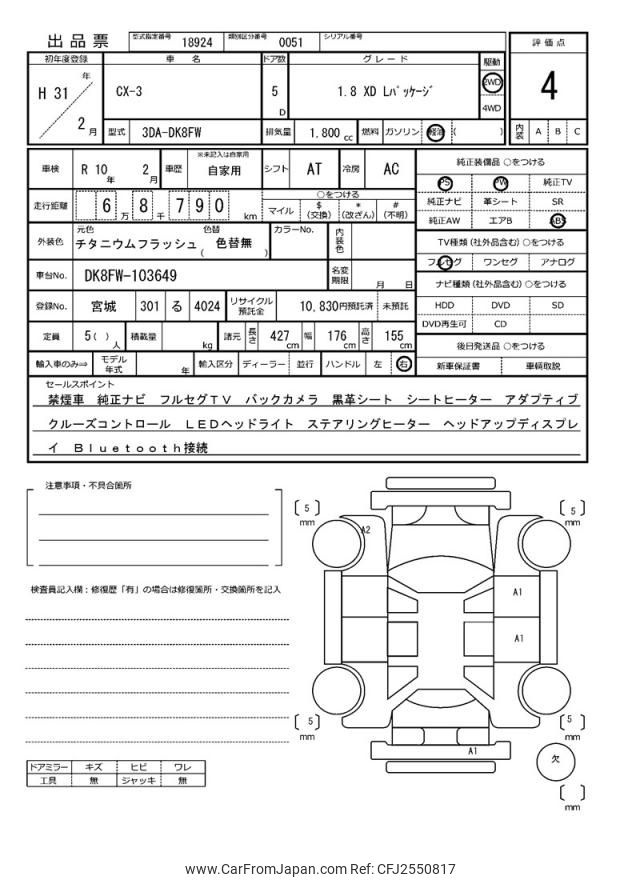 出品票 型式指定番号 18924 類別区分番号 0051 シリアル番号
評価点
4
内装 A B C
初年度登録 車 名 ドア数 グレード 駆動
H 31 年 2 月 CX-3 5 D 1.8 XD Lパッケージ 2WD
4WD
型式 3DA-DK8FW 排気量 1,800 cc 燃料 ガソリン 軽油 ( )
車検 R 10 年 2 月 車歴 ※未記入は自家用 自家用 シフト AT 冷房 AC
走行距離 6 万 8 千 7 9 0 km ○をつける
マイル $ (交換) * (改ざん) # (不明)
外装色 元色 チタニウムフラッシュ 色替 ( 色替無 ) カラーNo. 内装色
車台No. DK8FW-103649 名変期限 月 日
登録No. 宮城 301 る 4024 リサイクル預託金 10,830円預託済 未預託
定員 5( ) 人 積載量 kg 諸元 長さ 427 cm 幅 176 cm 高さ 155 cm
輸入車のみ⇨ モデル年式 年 輸入区分 ディーラー 並行 ハンドル 左 右
純正装備品 ○をつける
PS PW 純正TV
純正ナビ 革シート SR
純正AW エアB ABS
TV種類 (社外品含む) ○をつける
フルセグ ワンセグ アナログ
ナビ種類 (社外品含む) ○をつける
HDD DVD SD
DVD再生可 CD
後日発送品 ○をつける
新車保証書 車輌取説
セールスポイント
禁煙車 純正ナビ フルセグTV バックカメラ 黒革シート シートヒーター アダプティブ
クルーズコントロール LEDヘッドライト ステアリングヒーター ヘッドアップディスプレ
イ Bluetooth接続
注意事項・不具合箇所
検査員記入欄：修復歴「有」の場合は修復箇所・交換箇所を記入
ドアミラー キズ ヒビ ワレ
工具 無 ジャッキ 無
5 mm
5 mm
A2
A1
A1
5 mm
5 mm
A1
欠
mm
www.CarFromJapan.com Ref: CFJ2550817